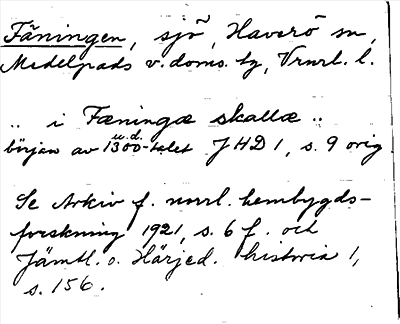 Fäningen, sjö, Haverö sn,
Medelpads v. doms. tg, Vrnrl. l.
.. i Fæningæ skallæ ..
u.d.
början av 1300-talet JHD 1, s. 9 orig
Se Arkiv f. norrl. hembygds-
forskning 1921, s. 6 f. och
Jämtl. o. Härjed. historia 1,
s. 156.